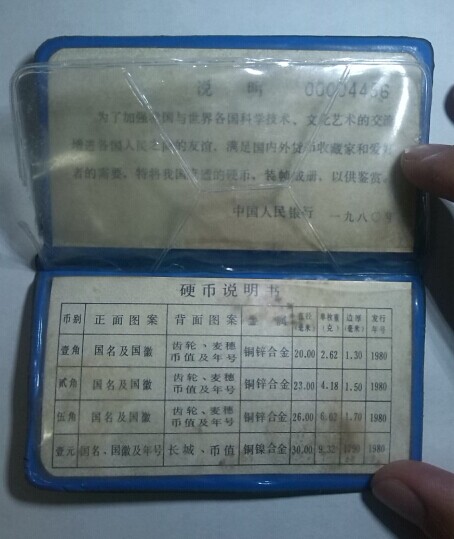 说 明 00004436
为了加强我国与世界各国科学技术、文化艺术的交流
增进各国人民之间的友谊，满足国内外货币收藏家和爱好
者的需要，特将我国铸造的硬币，装帧成册，以供鉴赏。
中国人民银行 一九八〇年
硬币说明书
币别 正面图案 背面图案 直径(毫米) 单枚重(克) 边厚(毫米) 发行年号
壹角 国名及国徽 齿轮、麦穗币值及年号 铜锌合金 20.00 2.62 1.30 1980
贰角 国名及国徽 齿轮、麦穗币值及年号 铜锌合金 23.00 4.18 1.50 1980
伍角 国名及国徽 齿轮、麦穗币值及年号 铜锌合金 26.00 6.02 1.70 1980
壹元 国名、国徽及年号 长城、币值 铜镍合金 30.00 9.32 1.90 1980